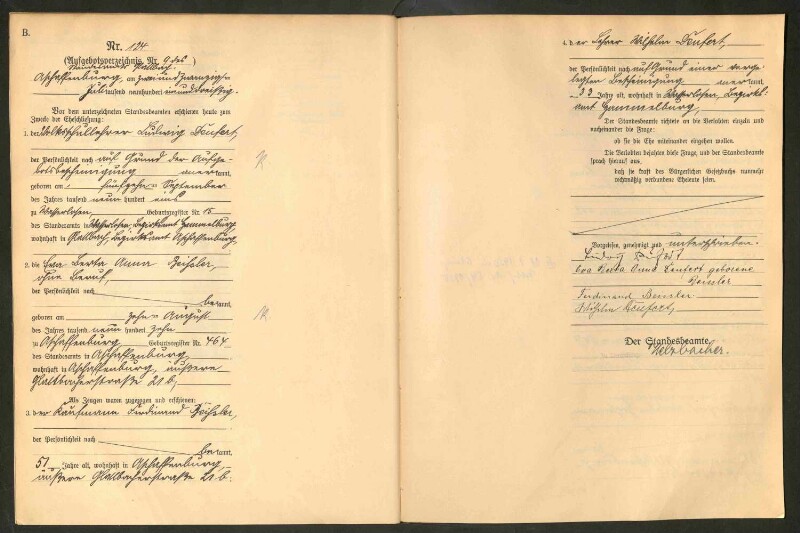 B.
Nr. 124
(Aufgebotsverzeichnis Nr. 9 des
Standesamts Glattbach)
Aschaffenburg, am zweiundzwanzigsten
Juli tausend neunhundert einunddreißig.
Vor dem unterzeichneten Standesbeamten erschienen heute zum
Zwecke der Eheschließung:
1. der Volksschullehrer Ludwig
der Persönlichkeit nach auf Grund der Aufge-
botsbescheinigung anerkannt,
geboren am fünfzehn September
des Jahres tausend neun hundert eins
zu Wasserlosen, Geburtsregister Nr. 15
des Standesamts in Wasserlosen, Bezirksamt Hammelburg,
wohnhaft in Glattbach, Bezirksamt Aschaffenburg,
2. die Eva Berta Anna
ohne Beruf,
der Persönlichkeit nach
bekannt,
geboren am zehn August
des Jahres tausend neun hundert zehn
zu Aschaffenburg, Geburtsregister Nr. 464
des Standesamts in Aschaffenburg,
wohnhaft in Aschaffenburg, äußere
Glattbacherstraße 21 b,
Als Zeugen waren zugezogen und erschienen:
3. der Kaufmann Ferdinand
der Persönlichkeit nach
bekannt,
51 Jahre alt, wohnhaft in Aschaffenburg
äußere Glattbacherstraße 21 b.
4. der Lehrer Wilhelm
der Persönlichkeit nach auf Grund einer vorge-
legten Bescheinigung anerkannt,
33 Jahre alt, wohnhaft in Wasserlosen, Bezirks-
amt Hammelburg,
Der Standesbeamte richtete an die Verlobten einzeln und
nacheinander die Frage:
ob sie die Ehe miteinander eingehen wollen.
Die Verlobten bejahten diese Frage, und der Standesbeamte
sprach hierauf aus,
daß sie kraft des Bürgerlichen Gesetzbuchs nunmehr
rechtmäßig verbundene Eheleute seien.
Vorgelesen, genehmigt und unterschrieben.
Ludwig
Eva Berta Anna geborene
Ferdinand
Wilhelm
Der Standesbeamte.
Welzbacher.